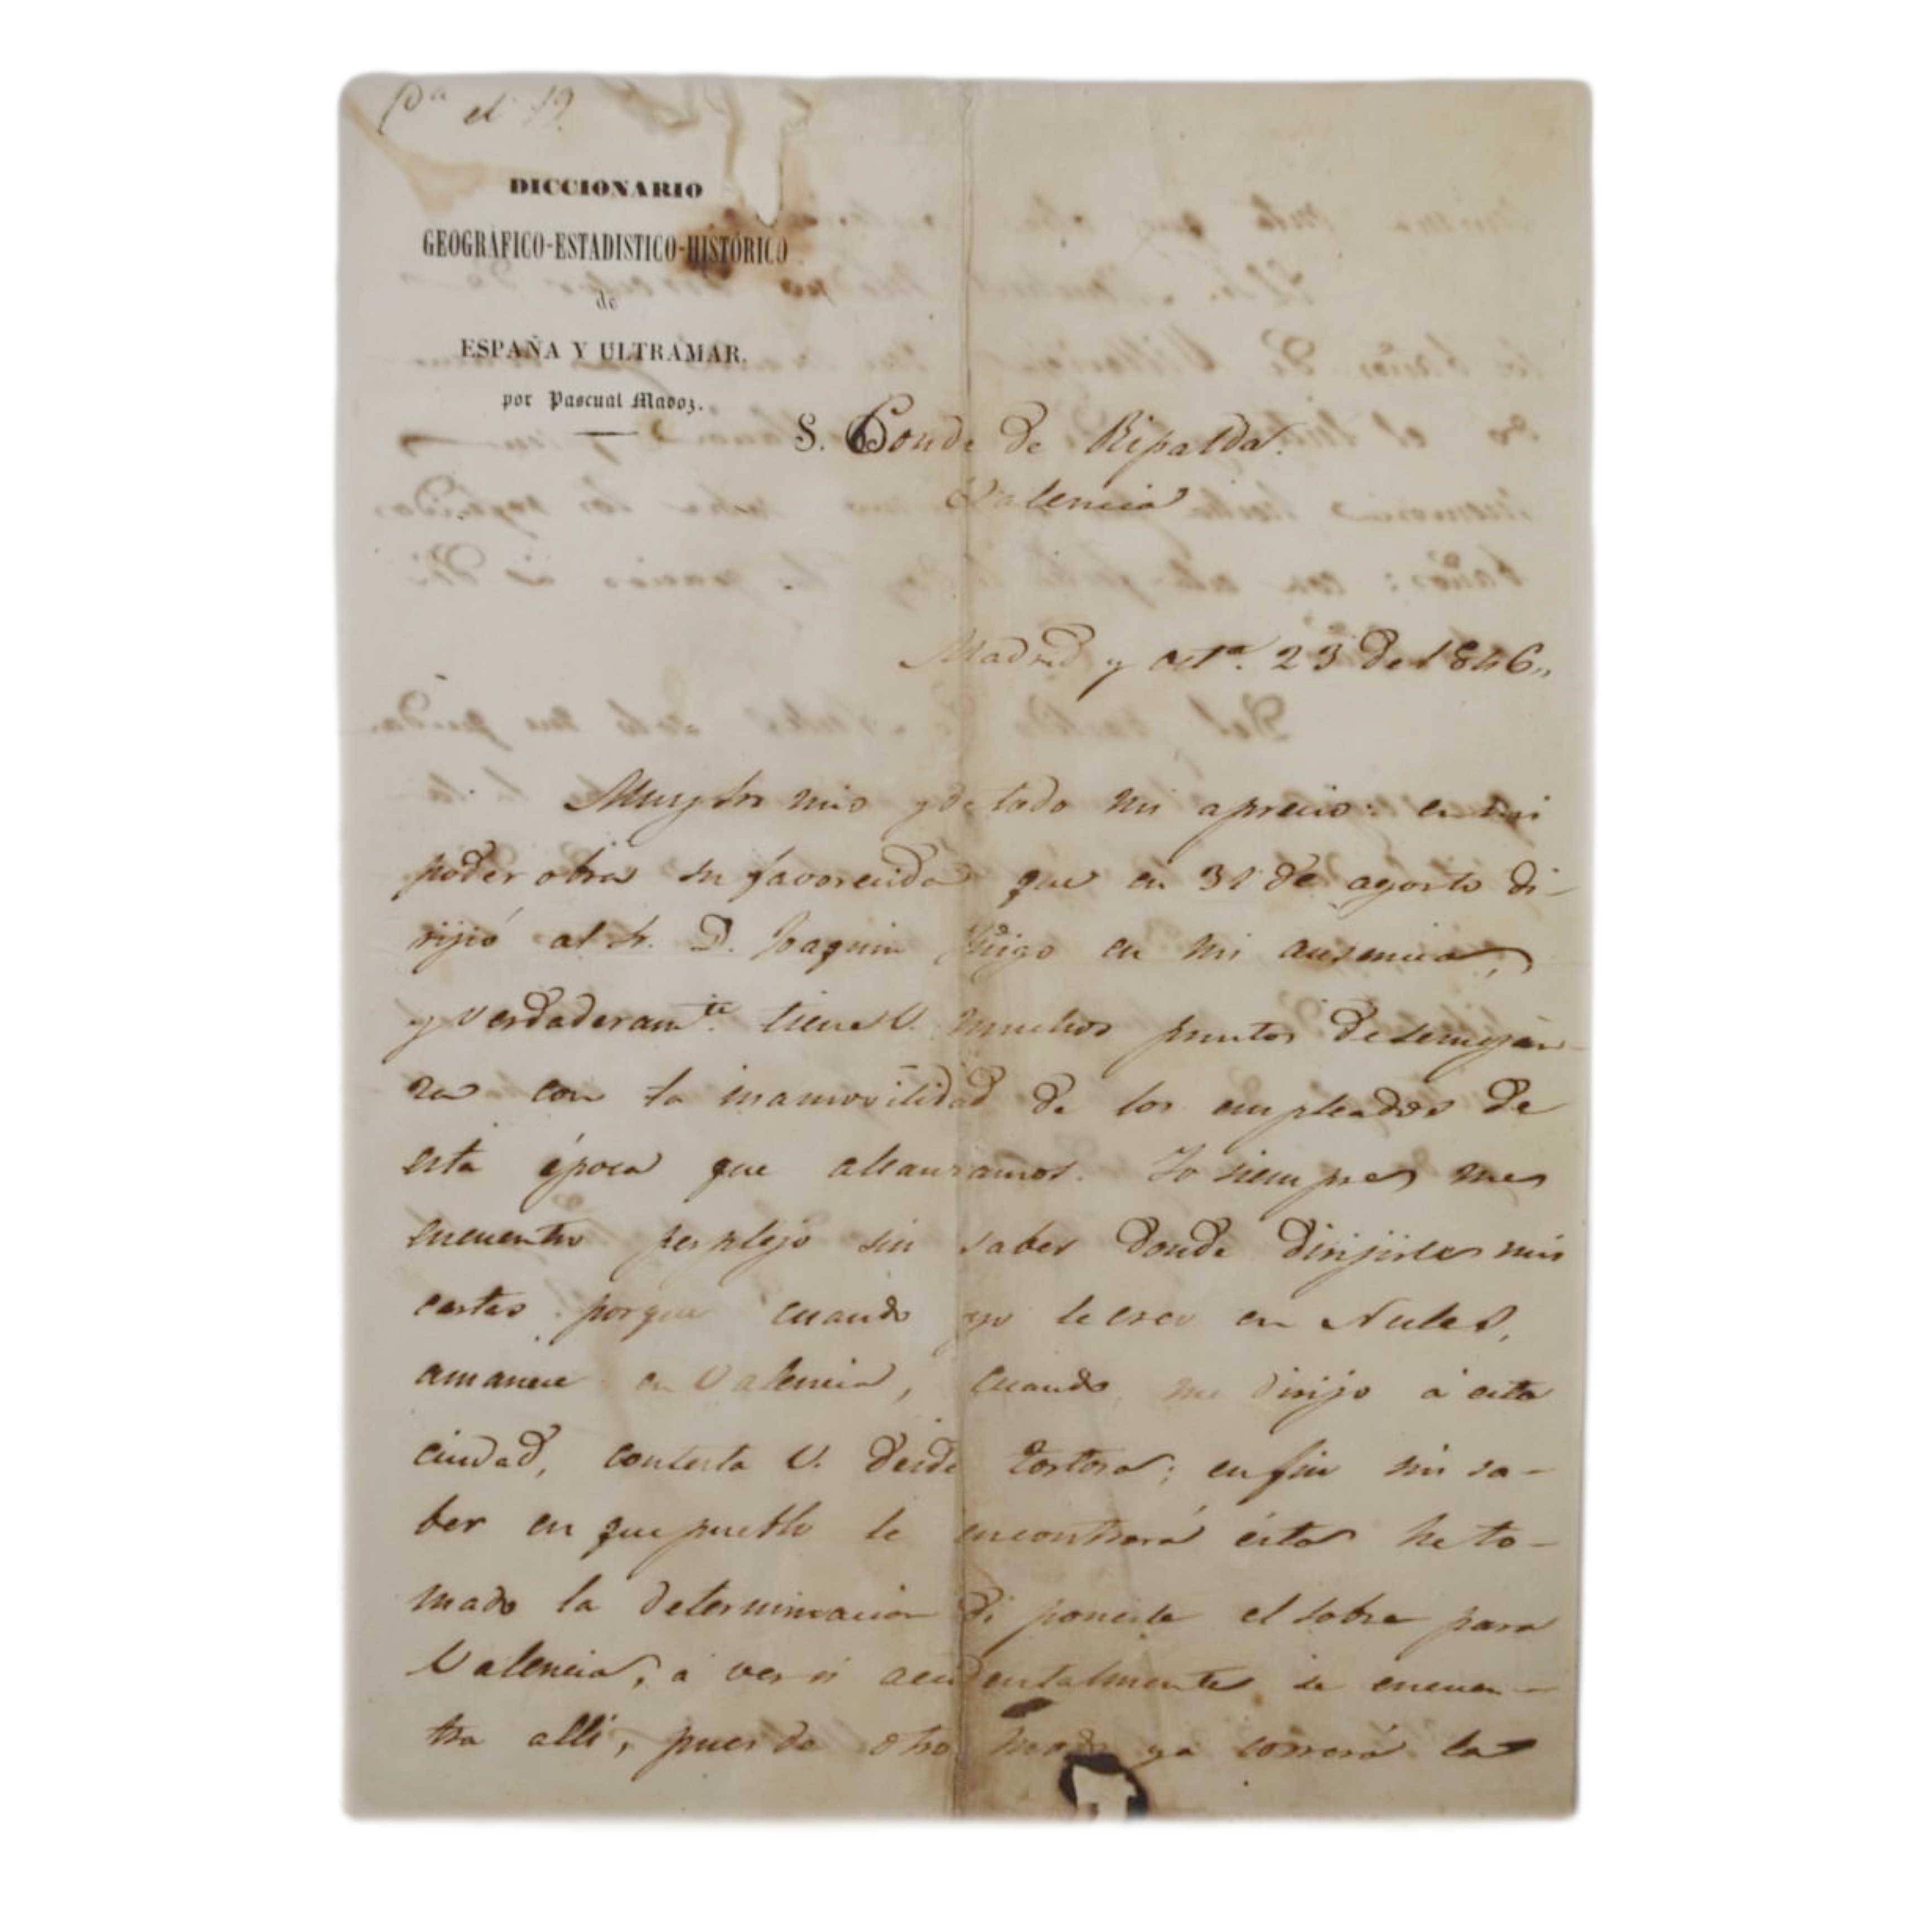 Pª el 19.
DICCIONARIO
GEOGRÁFICO-ESTADISTICO-HISTÓRICO
de
ESPAÑA Y ULTRAMAR.
por Pascual Madoz.
S. Conde de Ripalda.
Valencia
Madrid y 23 de 1846,,
Muy Sr mio y de todo mi aprecio: en mi
poder obra su favorecida que en 31 de agosto di-
rijió al Sr. D. Joaquin Iñigo en mi ausencia,
y verdaderamte. tiene V. muchos puntos de semejan-
za con la inamovilidad de los empleados de
esta época que alcanzamos. Yo siempre me
encuentro perplejo sin saber donde dirijirle mis
cartas porque cuando yo le creo en Nules,
amanece en Valencia, cuando me dirijo á esta
ciudad, contesta V. desde Tortosa; en fin sin sa-
ber en que pueblo le encontrará ésta he to-
mado la determinacion de ponerle el sobre para
Valencia, á ver si accidentalmente se encuen-
tra alli, pues de otro modo ya correrá la